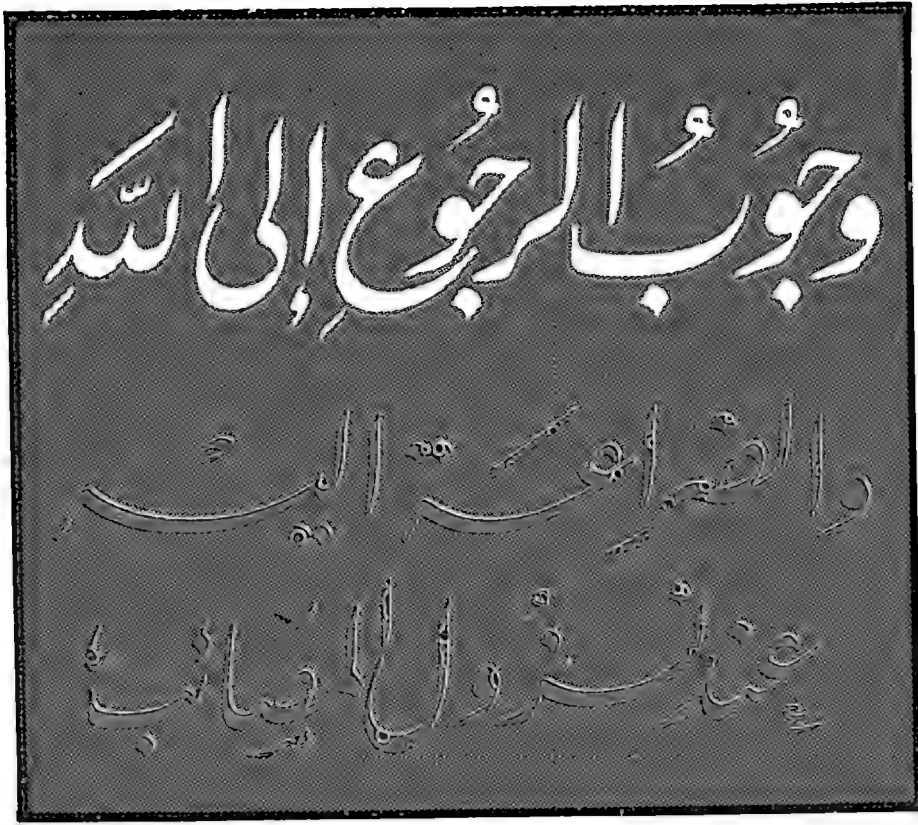 وجُوبُ الرجُوعِ إلى اللَّهِ
والضراعة إليه
عند نزول المصائب